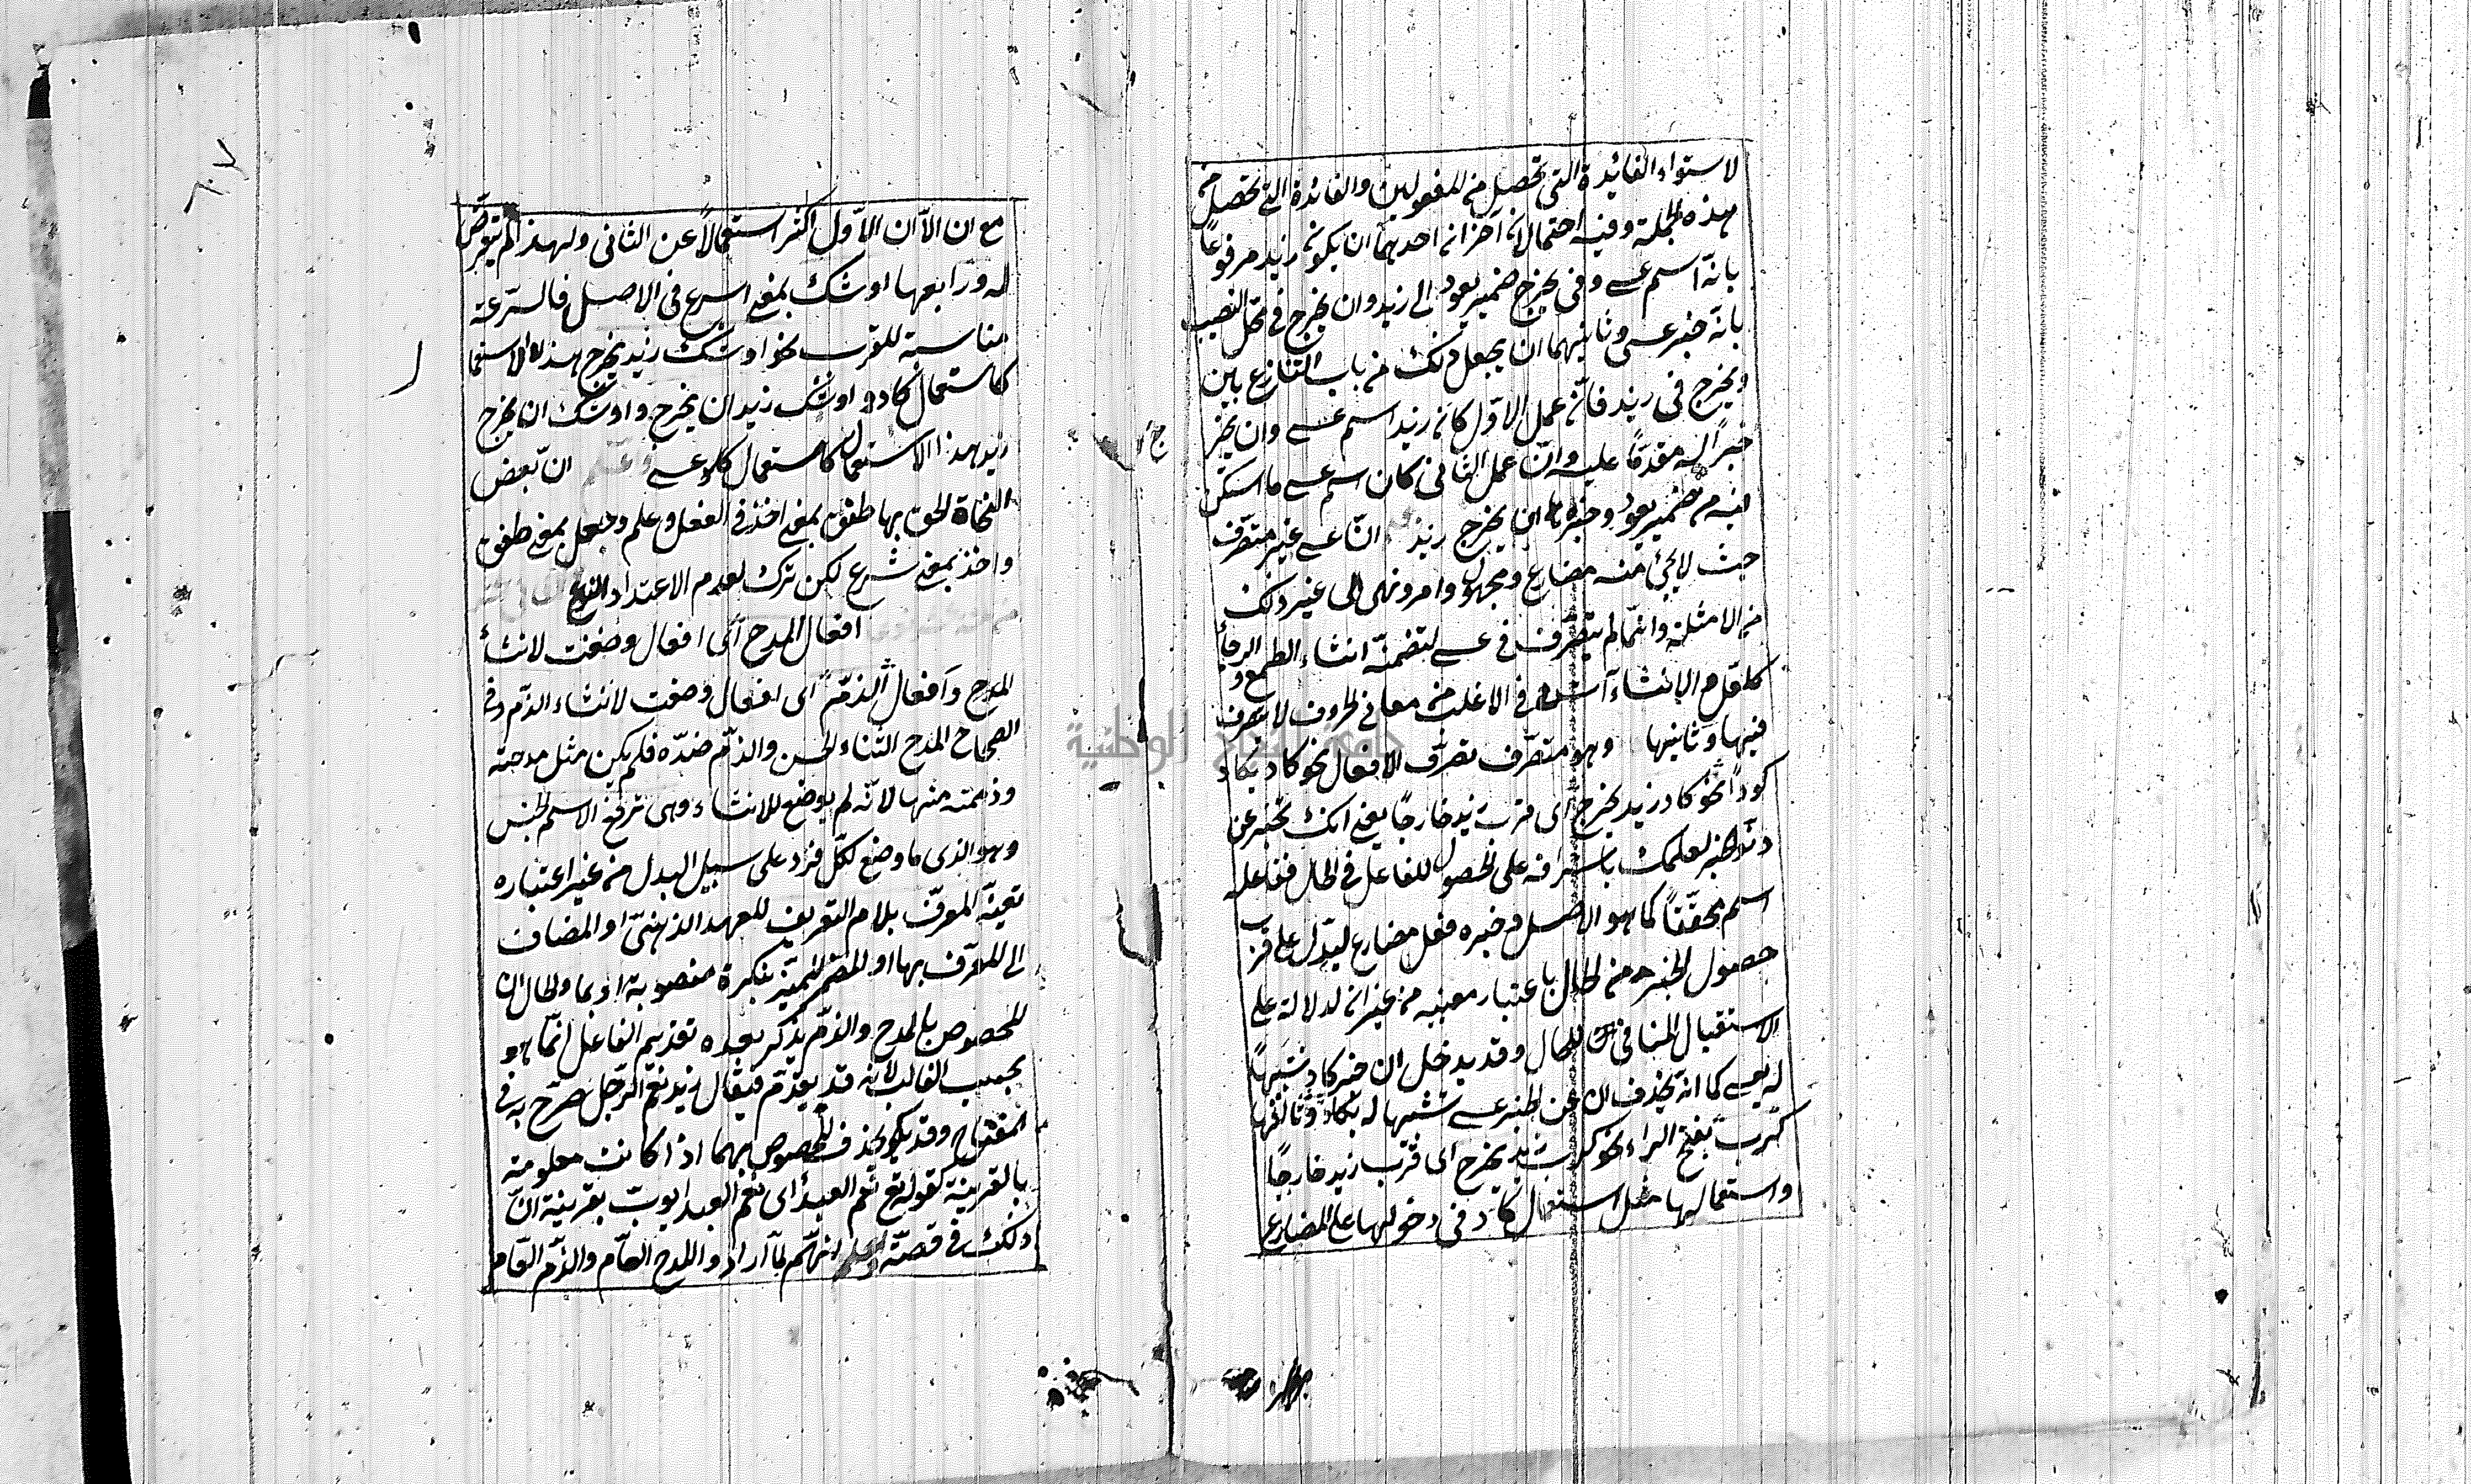 لاستواء الفائدة التى تحصل من المفعولين والفائدة التى تحصل من
هذه الجملة وفيه احتمالان آخران احدهما ان يكون زيد مرفوعا
بانه اسم عسى وفى يخرج ضمير يعود الى زيد وان يخرج فى محل النصب
بانه خبر عسى وثانيهما ان يجعل ذلك من باب التنازع بين
ويخرج فى زيد فان عمل الاول كان زيد اسم عسى وان يخرج
خبراً له مقدمًا عليه وان عمل الثانى كان اسم عسى ما استكن
فيه من ضمير يعود وخبره ان يخرج زيد ان عسى غير متصرف
حيث لا يجئ منه مضارع ومجهول وامر ونهى الى غير ذلك
من الامثلة وانما لم يتصرف فى عسى لتضمنه انشاء الطمع و الرجاء
كلعل والانشاء فى الاغلب من معانى الحروف لا يتصرف
فيها وثانيها وهو متصرف تصرف الافعال نحو كاد يكاد
كوداً نحو كاد زيد يخرج اى قرب زيد خارجًا يعنى انك تخبر عن
دنو الخبر لعلمك باشرافه على الحصول للفاعل فى الحال ففاعله
اسم محققًا كما هو الاصل وخبره فعل مضارع ليدل على قرب
حصول الخبر من الحال باعتبار معنييه من غير ان لدلالته على
الاستقبال المنافى للحال وقد يدخل ان خبر كاد تشبيهاً
له بعسى كما انه يحذف ان عن خبر عسى تشبيها له بكاد وثالثها
كرب بفتح الراء نحو كرب زيد يخرج اى قرب زيد خارجًا
واستعمالها مثل استعمال كاد فى دخولها على المضارع
مع ان الا ان الاول اكثر استعمالاً عن الثانى ولهذا لم يتعرض
له ورابعها اوشك بمعنى اسرع فى الاصل فالسرعة
مناسبة للقرب نحو اوشك زيد يخرج هذا الاستعما
كاستعمال كاد واوشك زيد ان يخرج واوشك ان يخرج
زيد هذا الاستعمال كاستعمال عسى ان بعض
النحاة الحق بها طفق بمعنى اخذ فى الفعل وعلم وجعل بمعنى طفق
واخذ بمعنى شرع لكن ترك لعدم الاعتداد
افعال المدح اى افعال وضعت لانشأ
المدح وافعال الذم اى افعال وضعت لانشاء الذم وفى
الصحاح المدح الثناء الحسن والذم ضده فلم يكن مثل مدحته
وذممته منها لانه لم يوضع للانشاء وهى ترفع الاسم الجنس
وهو الذى ما وضع لكل فرد على سبيل البدل من غير اعتباره
تعينه المعرف بلام التعريف للعهد الذهنى او المضاف
الى المعرف بها او المضمر المميز بنكرة منصوبة او بما والحال ان
المخصوص بالمدح والذم يذكر بعده تقديم الفاعل انما هو
بحسب الغالب لانه قد يقدم فيقال زيد نعم الرجل صرح به فى
المفتاح وقد يكون يحذف المخصوص بهما اذا كانت معلومة
بالقرينة كقوله تع نعم العبد اى نعم العبد ايوب بقرينة ان
ذلك فى قصته انهم لما ارادوا المدح العام والذم العام